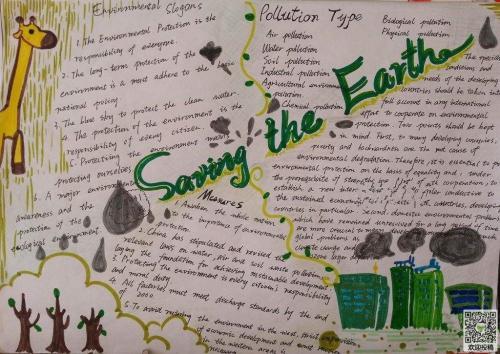 Environmental Slogans
1. The Environmental Protection is the
responsibility of everyone.
2. The long-term protection of the
environment is a most adhere to the basic
national policy
3. The blue sky to protect the clean water.
4. The protection of the environment is the
responsibility of every citizen.
5. Protecting the environment means
protecting ourselves
6. A major environmental
awareness and the
protection of the
ecological environment.
Pollution Type
Air pollution
Water pollution
Soil pollution
Industrial pollution
Agricultural environment
pollution.
Chemical pollution
Biological pollution
Physical pollution
Saving the Earth
The special
conditions and
needs of the developing
countries should be taken into
full account in any international
effort to cooperate on environmental
protection. Two points should be kept
in mind. First, to many developing countries,
poverty and backwardness are the root causes of
environmental degradation. Therefore, it is essential to
environmental protection on the basis of equality and, under
the prerequisite of strengthening cooperation to
establish a new order conducive to
the sustained economic of countries, developing
countries in particular. Second, domestic environmental problems
which have remained unresolved for a long period of time
are more crucial to
global problems as
climate change and
ozone layer
Measures
1. Awaken the whole nation
to the importance of environmental
protection.
2. China has stipulated and revised the
relevant laws on water, air and solid waste pollution,
laying the foundation for achieving sustainable development
3. Protecting the environment is every citizen's responsibility
and moral duty
4. All factories must meet discharge standards by the end
of 2000
5. To avoid ruining the environment in the west, strict supervision
of economic development and
in the western areas is
necessary
欢迎投稿